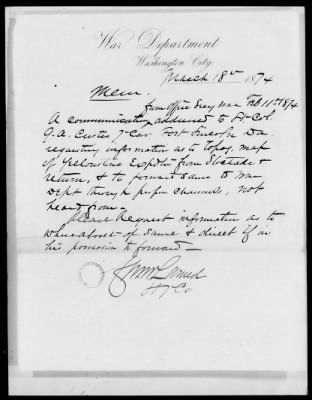 War Department
Washington City,
March 18th 1874
Mem.
from Office Secy War Feb. 11th 1874
A communication addressed to Lt Col.
G.A. Custer 7" Cav Fort Lincoln Da.
requesting information as to topog. map
of Yellowstone Expdtn from
return, & to forward same to War
Dept through proper channels, not
heard from—
Please Request information as to
whereabouts of same & direct if in
his possession to forward—